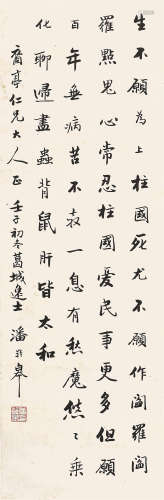 生不願為上柱國死尤不願作閻羅閻
羅點鬼心常忍柱國憂民事更多但願
百年無病苦不教一息有愁魔悠悠乘
化聊歸盡蟲背鼠肝皆太和
齋亭仁兄大人正 壬子初冬葛城逸士 潘齡皋